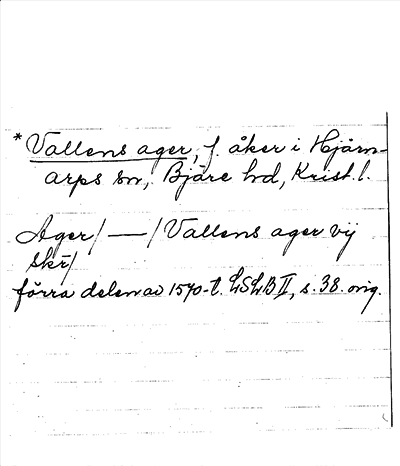 * Vallens ager, f. åker i Hjärn-
arps sn, Bjäre hd, Krist. l.
Ager/ — / Vallens ager vij
skr/
förra delen av 1570-t. LSLB II, s. 38. orig.